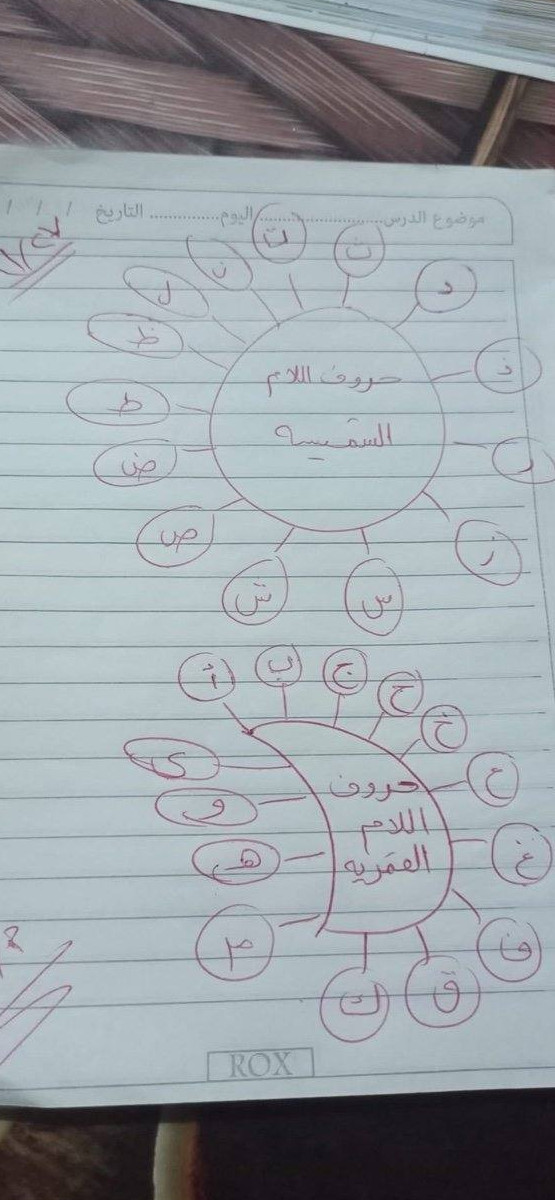 موضوع الدرس.....................اليوم............... التاريخ / / /
ت
ث
د
ذ
ر
ز
س
ش
ص
ض
ط
ظ
ل
ن
حروف اللام
الشمسيه
أ
ب
ج
ح
خ
ع
غ
ف
ق
ك
م
هـ
و
ي
حروف
اللام
القمريه
ROX